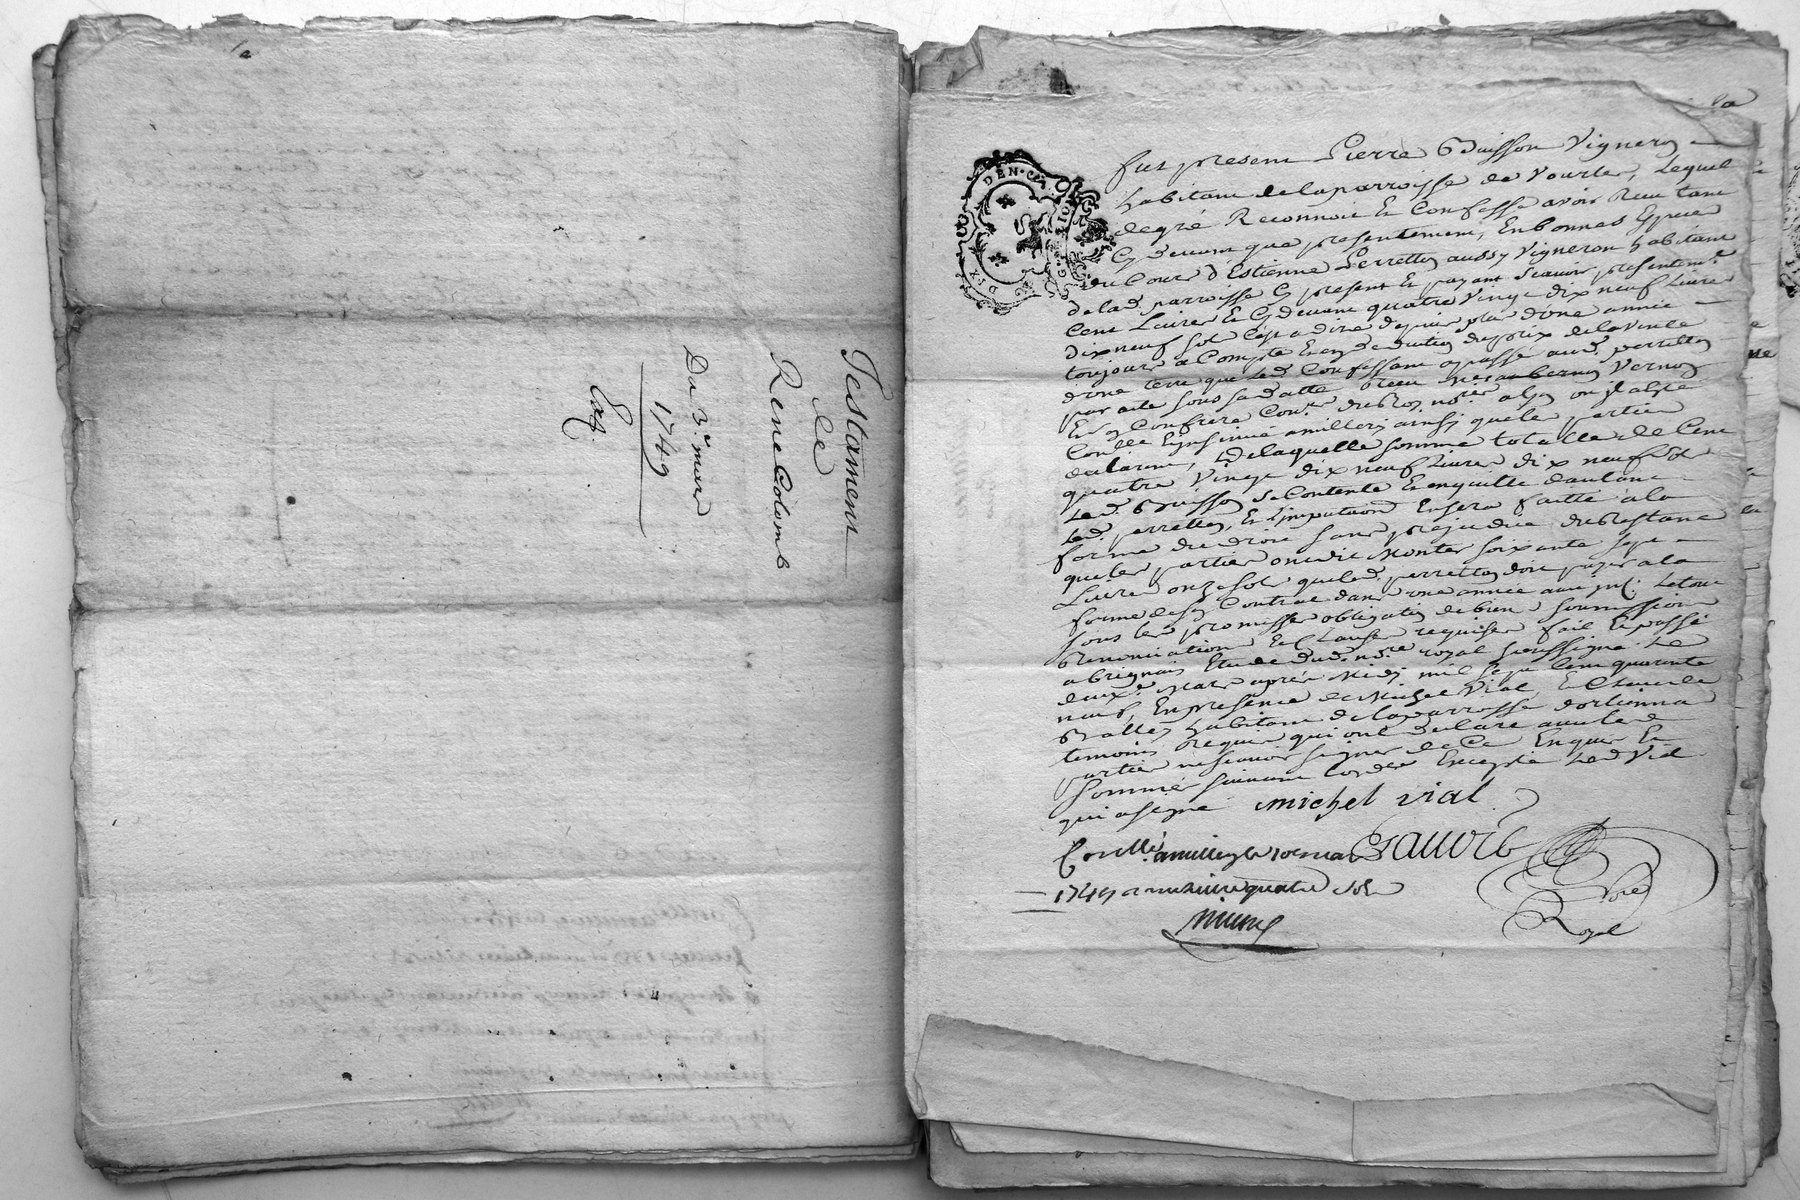 Testament
de
René Colomb
Du 3e mars
1749
DEN
LION
fut present Pierre Buisson Vigneron
habitant de la parroisse de Vourles, Lequel
de gré Reconnoit Et Confesse avoir Receu tant
Cy devant que presentement, En bonnes Especes
du Cours d'Estienne Perretton aussy Vigneron habitant
de lad. parroisse Cy present Et payant scavoir presentemt
Cent Livres Et Cy devant quatre Vingt dix neuf Livres
dix neuf sols C'est a dire depuis plus d'une année
toujours a Compte Et en deduction du prix de la Vente
d'une terre que led. Confessant a passé aud. perretton
par acte sous sa datte receu Vernon
Et Confrere Conr. du Roy nore
Controllé Et Insinué a millery ainsi que les parties
declarent, De laquelle somme totalle de Cent
quatre Vingt dix neuf Livres dix neuf sols
Led. Buisson se Contente Et en quitte d'autant
led. perretton, Et L'imputation En sera faitte a la
forme du droit sans prejudice du Restant
que les parties ont dit Monter soixante sept
Livres onze sols que led. perretton doit payer a la
forme de sd. Contrat dans une année Le tout
sous les promisses obligation de biens soumissions
Renonciation Et Clauses requises fait Et passé
a brignais Etude dud. nore royal soussigné Le
deuxe. Mars après Midy mil sept Cent quarante
neuf, En presence de Michel Vial, Et Claude
habitant de la parroisse d'orlienna
temoins Requis qui ont declaré avec les
parties ne scavoir signer de Ce Enquis Et
sommés suivant l'ordce Excepté Led. Vial
qui a signé michel vial
Corollé a millery le
1749 et reçu une livre quatre sols
Nore
Royal